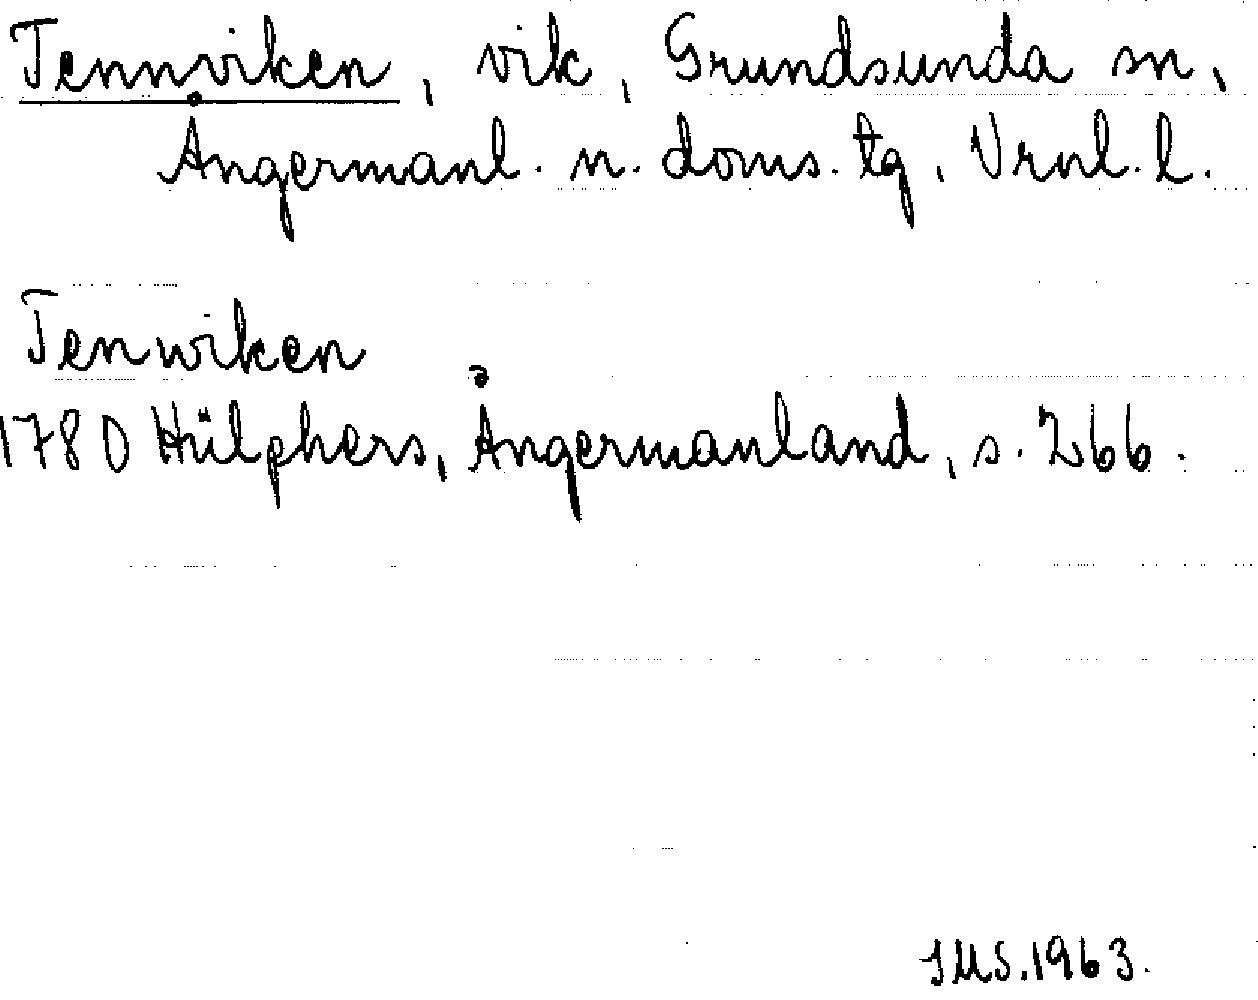 Tennviken, vik, Grundsunda sn,
Ångermanl. n. doms. tg, Vrnl. l.
Tenwiken
1780 Hülphers, Ångermanland, s. 266.
JMS. 1963.